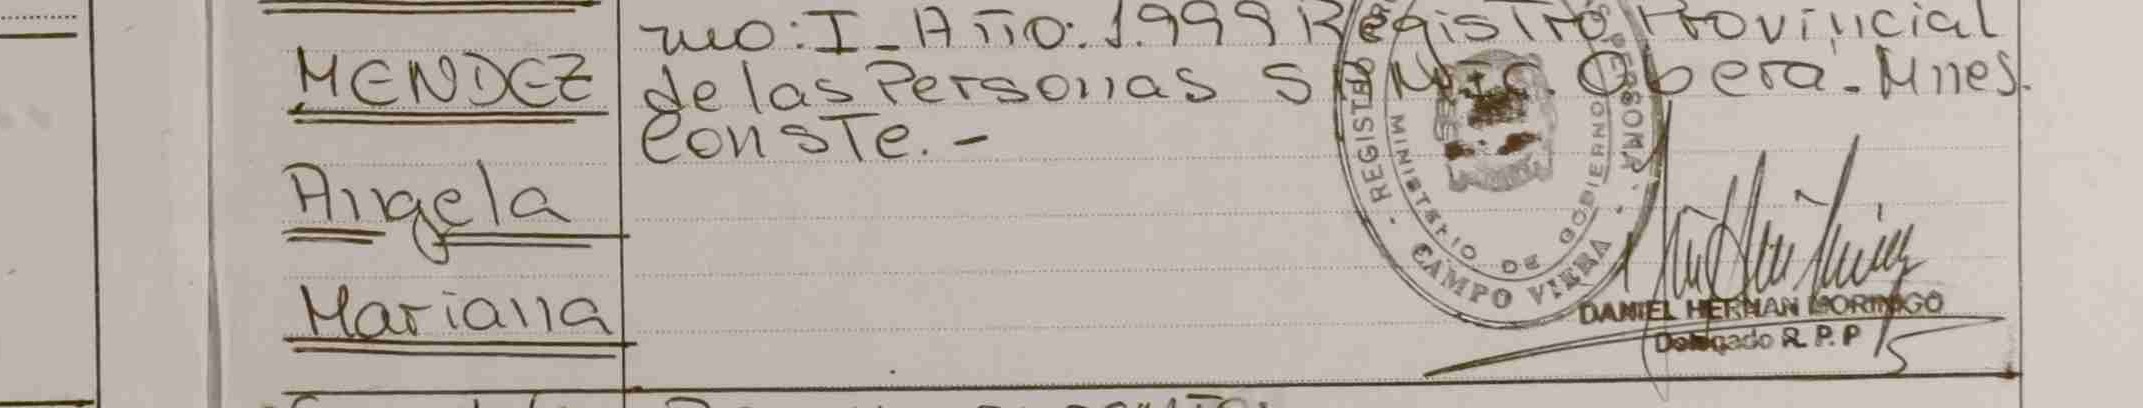 MENDEZ
Angela
Mariana
mo: I - Año: 1.999 Registro Provincial
de las Personas Oberá - Mnes.
Conste. -
REGISTRO
PERSONAS
MINISTERIO DE GOBIERNO
CAMPO VIERA
DANIEL HERNAN MORINIGO
Delegado R. P. P